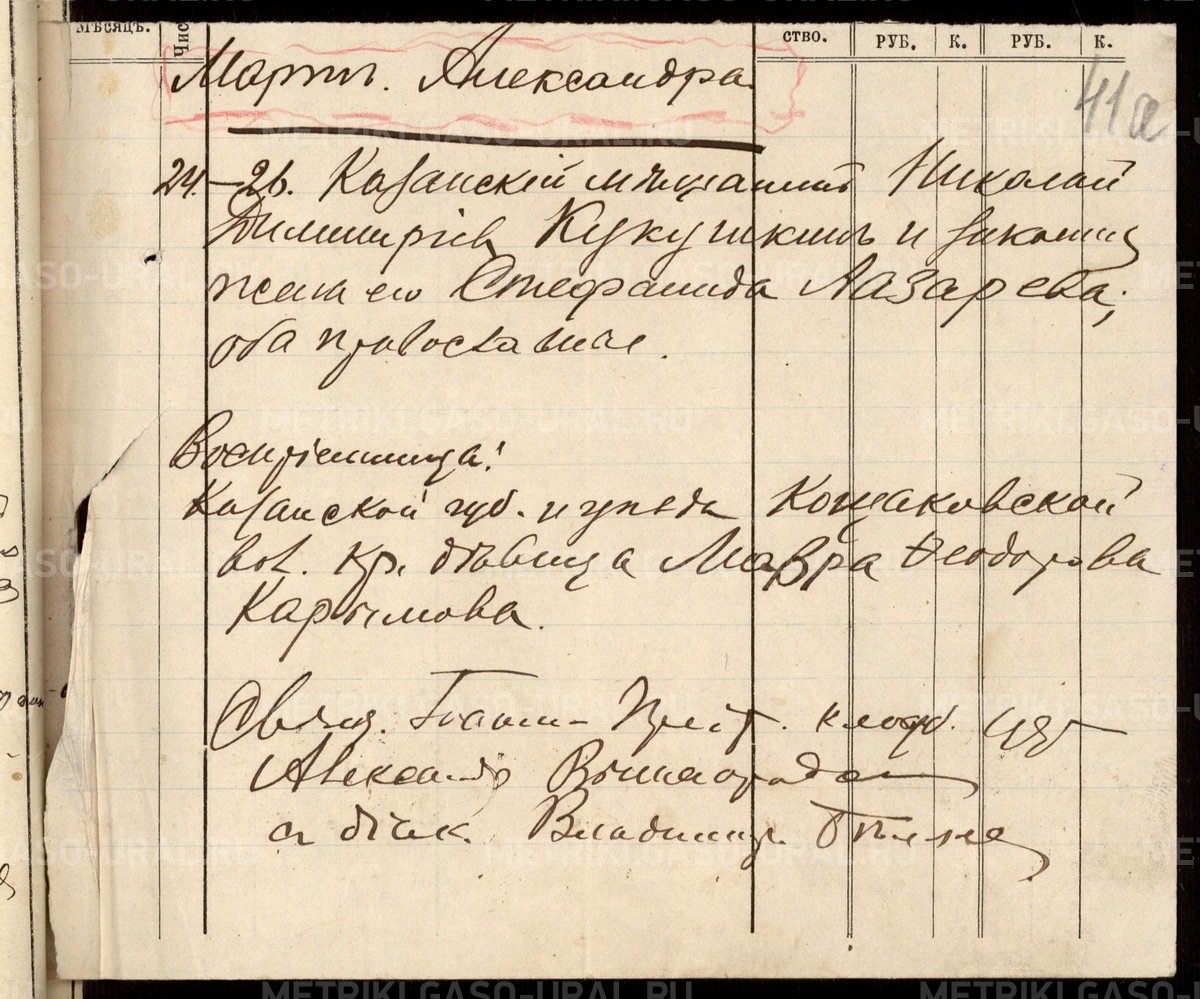 мѣсяцъ.
Чис
ство.
РУБ.
К.
РУБ.
К.
41а
Мартъ. Александра
24.–26. Казанскій мѣщанинъ Николай
Димитріев Кукушкинъ и законная
жена его Стефанида Лазарева;
оба православные.
Воспріемница:
Казанской губ. и уѣзда Кощаковской
вол. кр. дѣвица Мавра Ѳеодорова
Карымова.
Свящ. кладб. церк
Александр Виноградов
діак. Владимир
METRIKI.GASO-URAL.RU